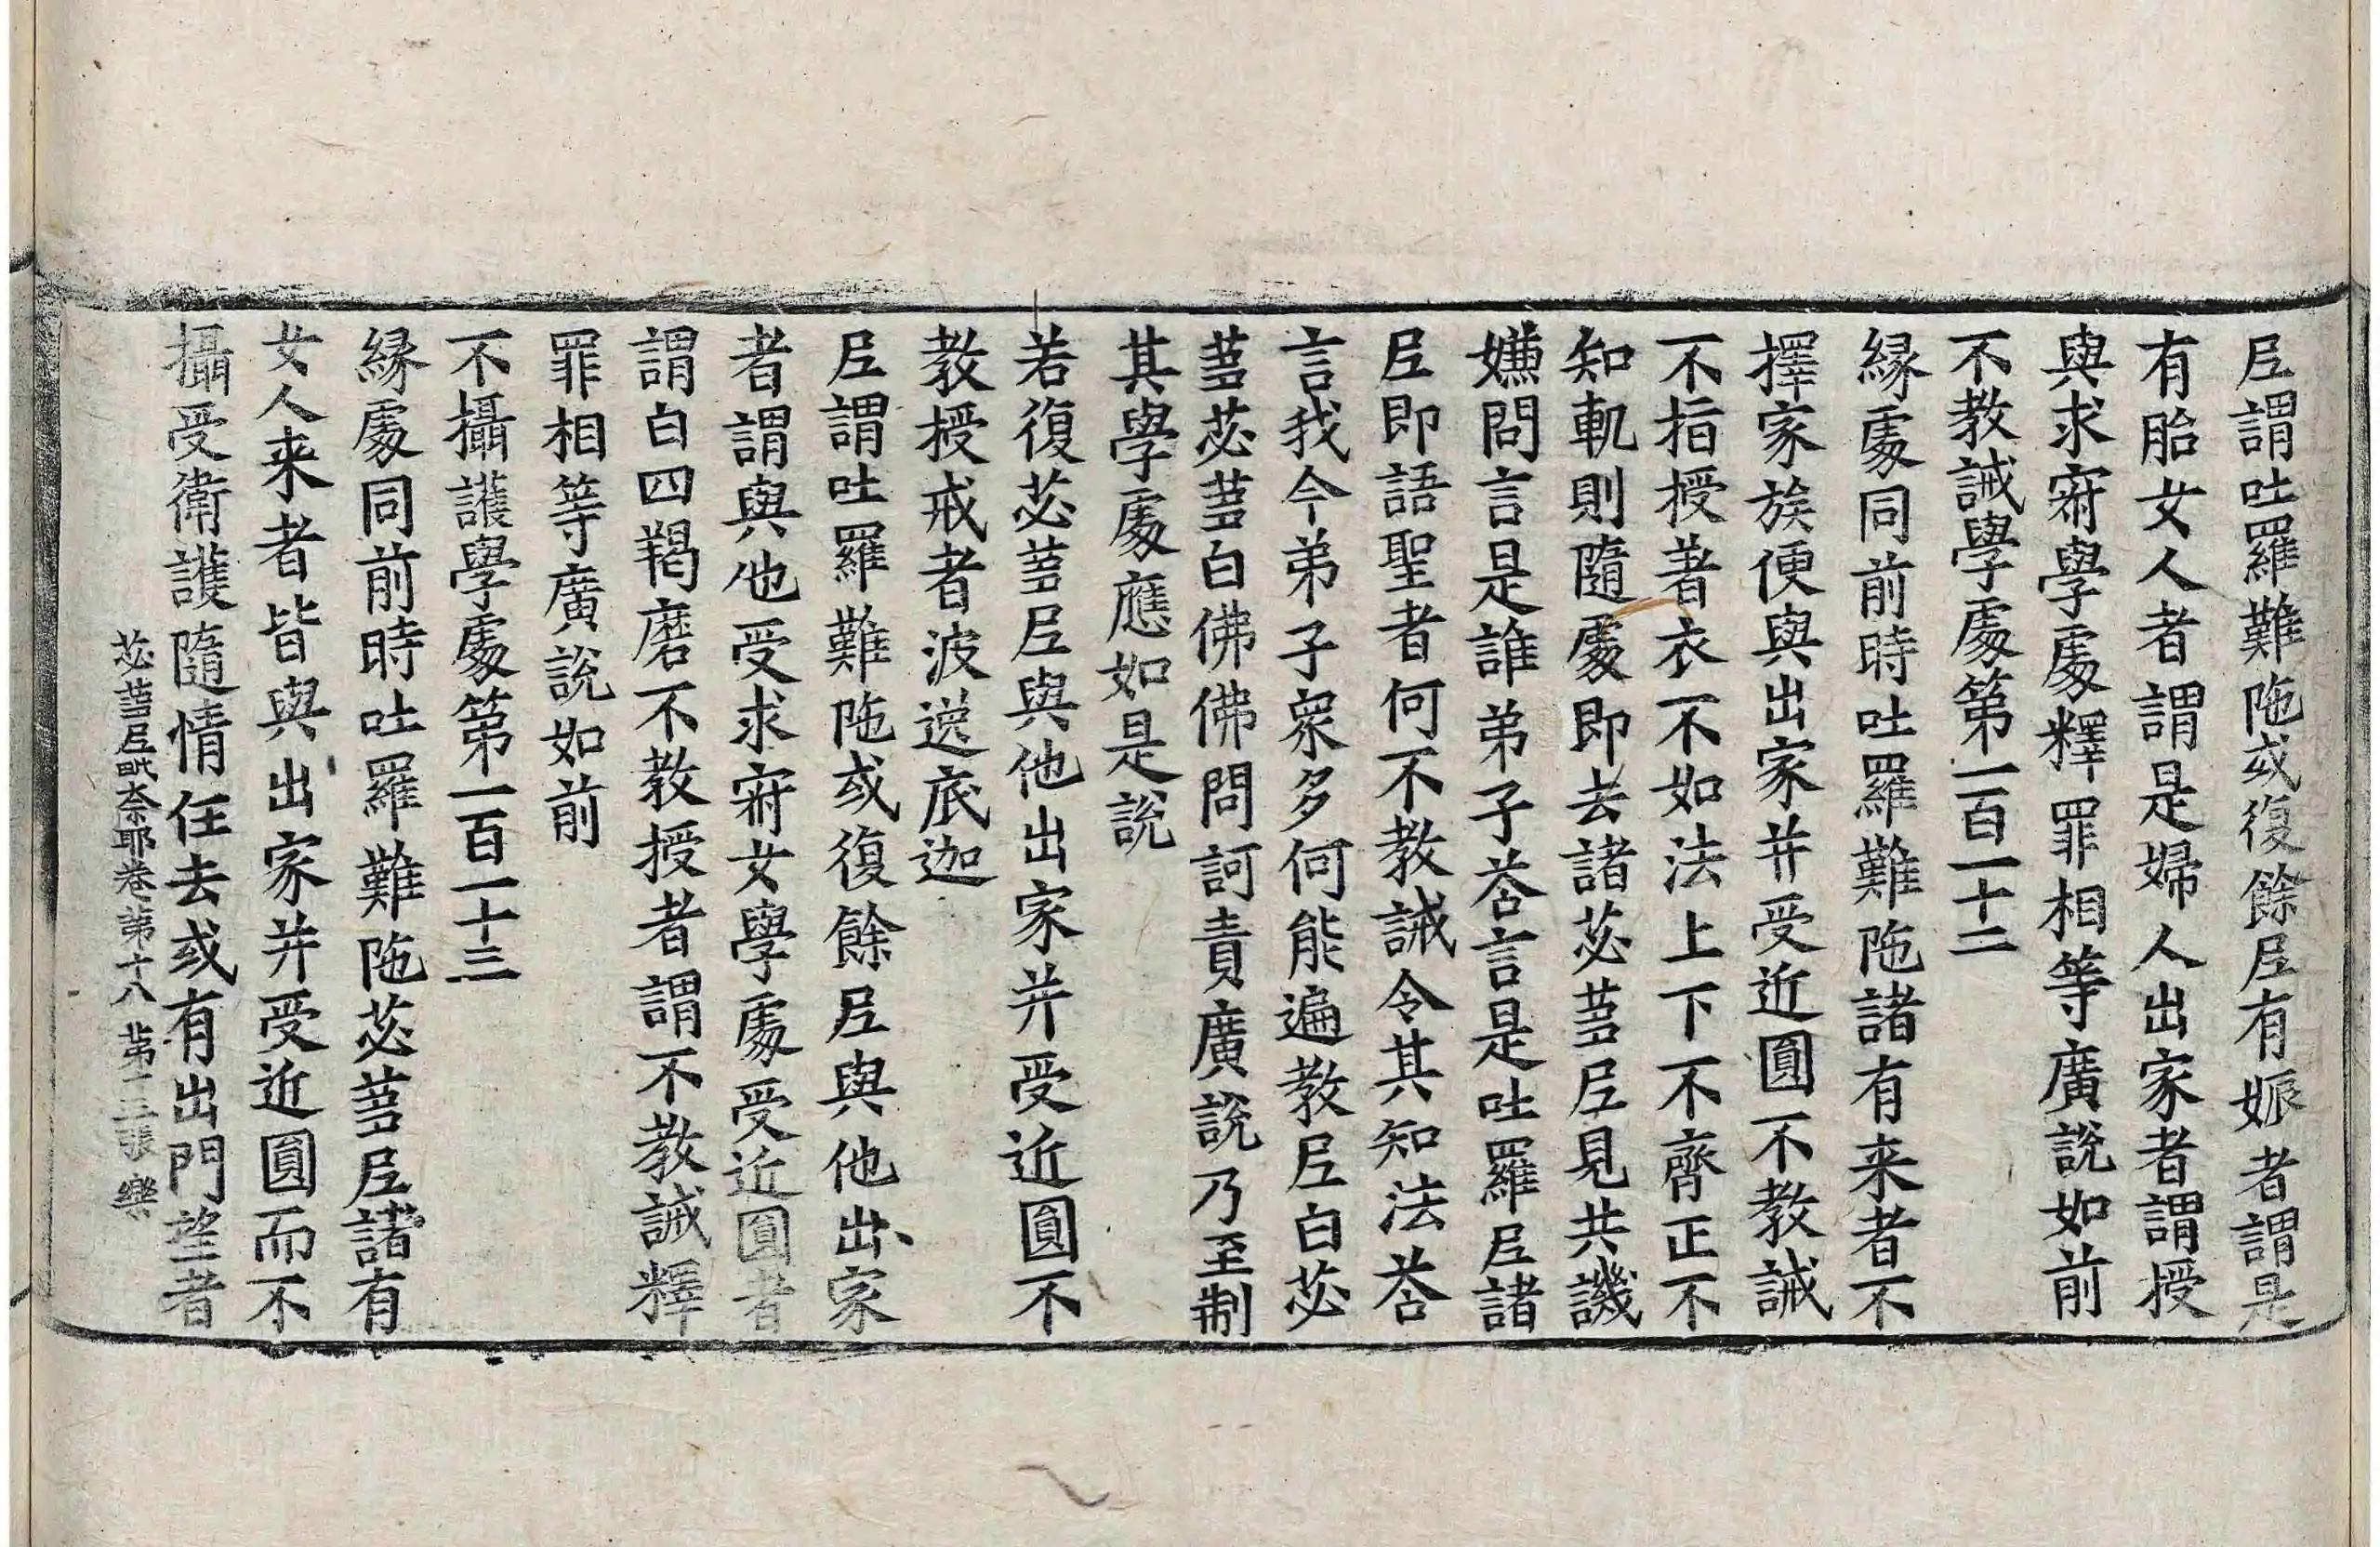 尼謂吐羅難陁或復餘尼有娠者謂是
有胎女人者謂是婦人出家者謂授
與求寂學處釋罪相等廣說如前
不教誡學處第一百一十二
縁處同前時吐羅難陁諸有来者不
擇家族便與出家并受近圓不教誡
不指授著衣不如法上下不齊正不
知軌則隨處即去諸苾蒭尼見共譏
嫌問言是誰弟子荅言是吐羅尼諸
尼即語聖者何不教誡令其知法荅
言我今弟子衆多何能遍教尼白苾
蒭苾蒭白佛佛問訶責廣說乃至制
其學處應如是說
若復苾蒭尼與他出家并受近圓不
教授戒者波逸底迦
尼謂吐羅難陁或復餘尼與他出家
者謂與他受求寂女學處受近圓者
謂白四羯磨不教授者謂不教誡釋
罪相等廣說如前
不攝護學處第一百一十三
縁處同前時吐羅難陁苾蒭尼諸有
女人来者皆與出家并受近圓而不
攝受衛護隨情任去或有出門望者
苾蒭尼毗奈耶卷第十八 第二張 樂